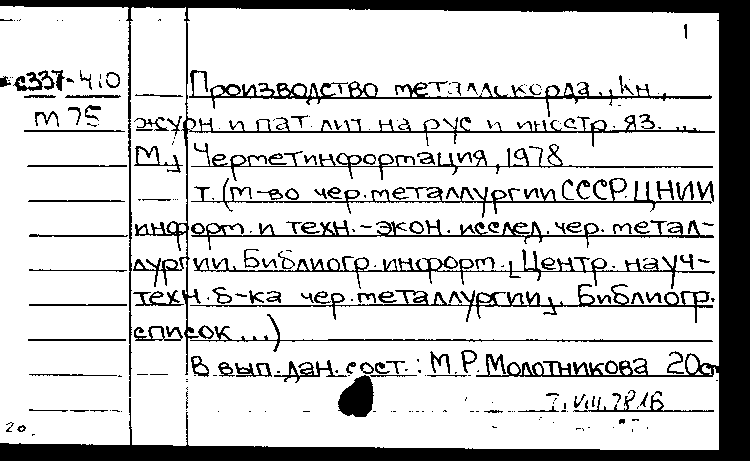 1
с337-410
М75
Производство металлокорда., Кн.,
журн. и пат. лит. на рус и иностр. яз. ...
М., Черметинформация, 1978
т. (М-во чер. металлургии СССР. ЦНИИ
информ. и техн.-экон. исслед. чер. метал-
лургии. Библиогр. информ. [Центр. науч-
техн. б-ка чер. металлургии]. Библиогр.
список ...)
В вып. дан. сост.: М.Р. Молотникова 20см
7.VIII.78 1Б
20